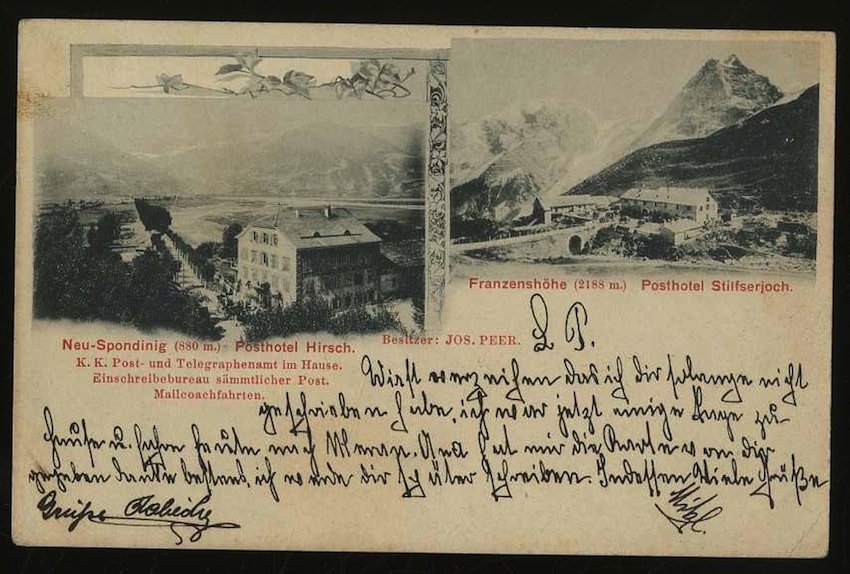 Franzenshöhe (2188 m.) Posthotel Stilfserjoch.
Neu-Spondinig (880 m.) Posthotel Hirsch.
K. K. Post- und Telegraphenamt im Hause.
Einschreibebureau sämmtlicher Post.
Mailcoachfahrten.
Besitzer: JOS. PEER.
L P.
Wirst verzeihen das ich dir solange nicht
geschrieben habe, ich war jetzt einige Tage zu
Hause u. fahre heute nach Meran. hat mir die Karte von dir
gegeben danke bestens, ich werde dir später schreiben. Indessen Viele Grüße
Grüße